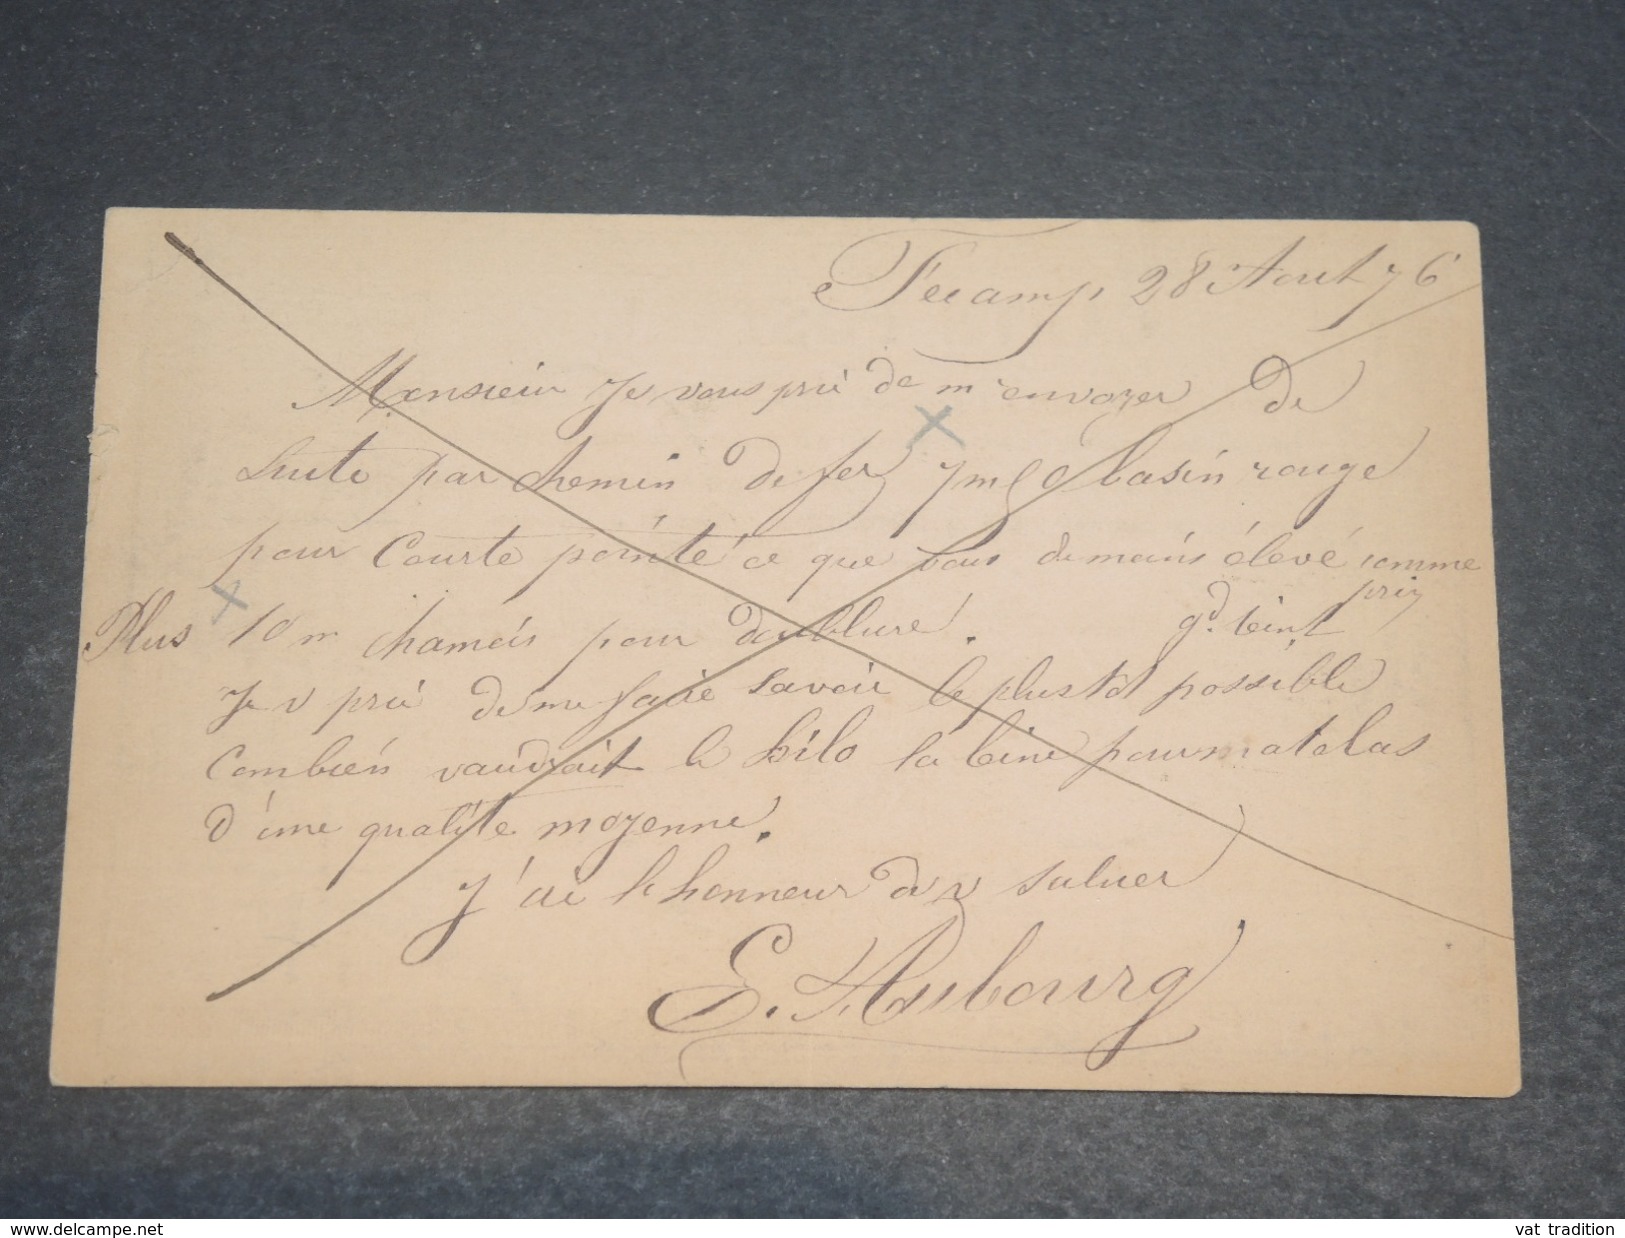 Fécamp 28 Aout 76
Monsieur Je vous prie de m'envoyer de
suite par chemin de fer 7m basin rouge
pour Courte pointe ce que vous de moins élevé comme
prix
Plus 10 m chamois pour doublure. gd. teint
Je v prie de me faire savoir le plus tôt possible
Combien vaudrait le kilo la laine pour matelas
d'une qualité moyenne.
J'ai l'honneur de v saluer
E. Aubourg
www.delcampe.net
vat_tradition